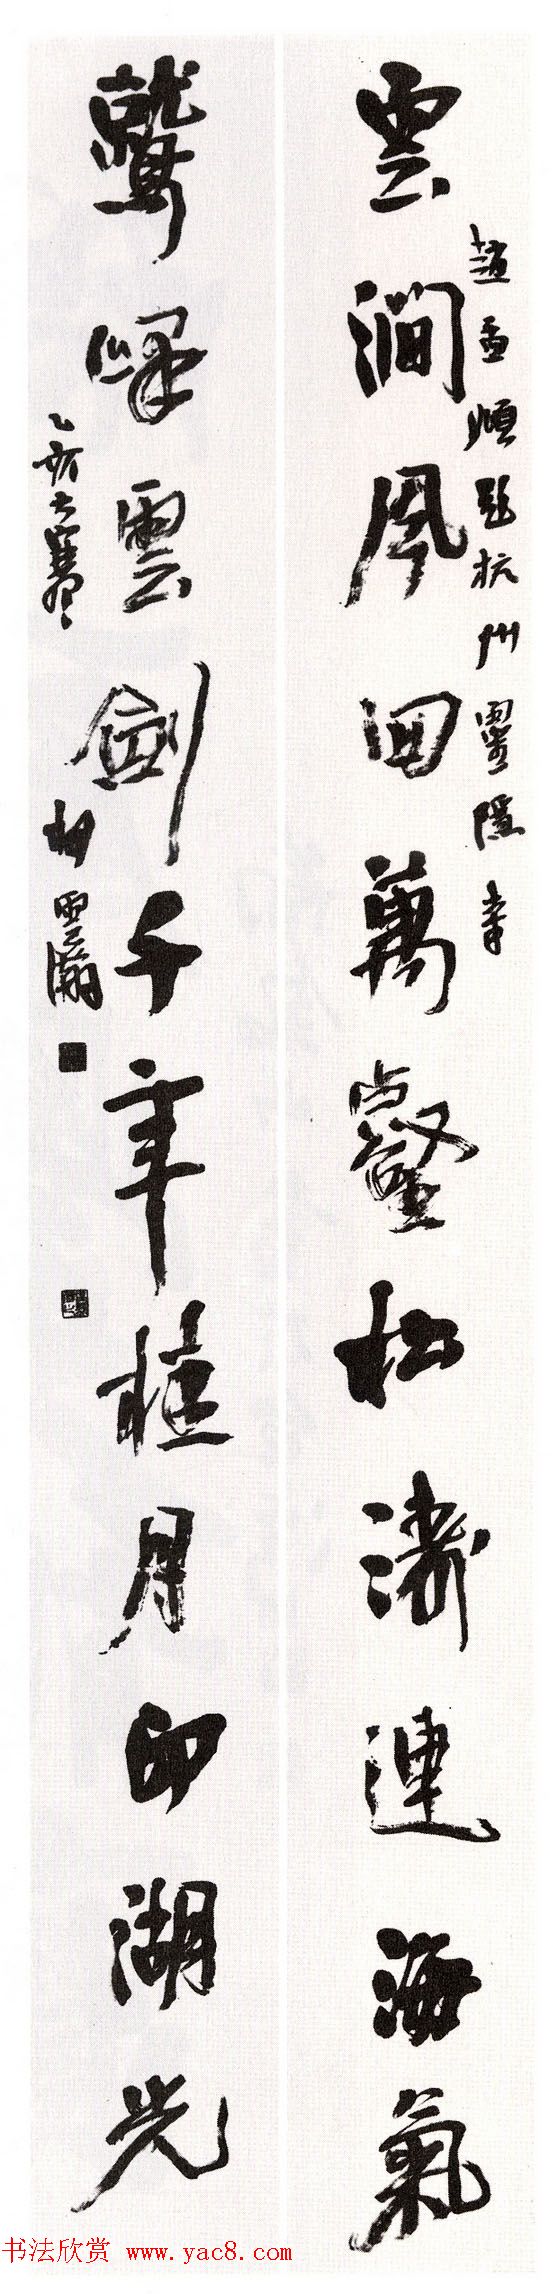 雲澗風回萬壑松濤連海氣
趙孟頫題杭州靈隱寺
鷲峰雲劍千年桂月印湖光
乙亥大寒
书法欣赏 www.yac8.com